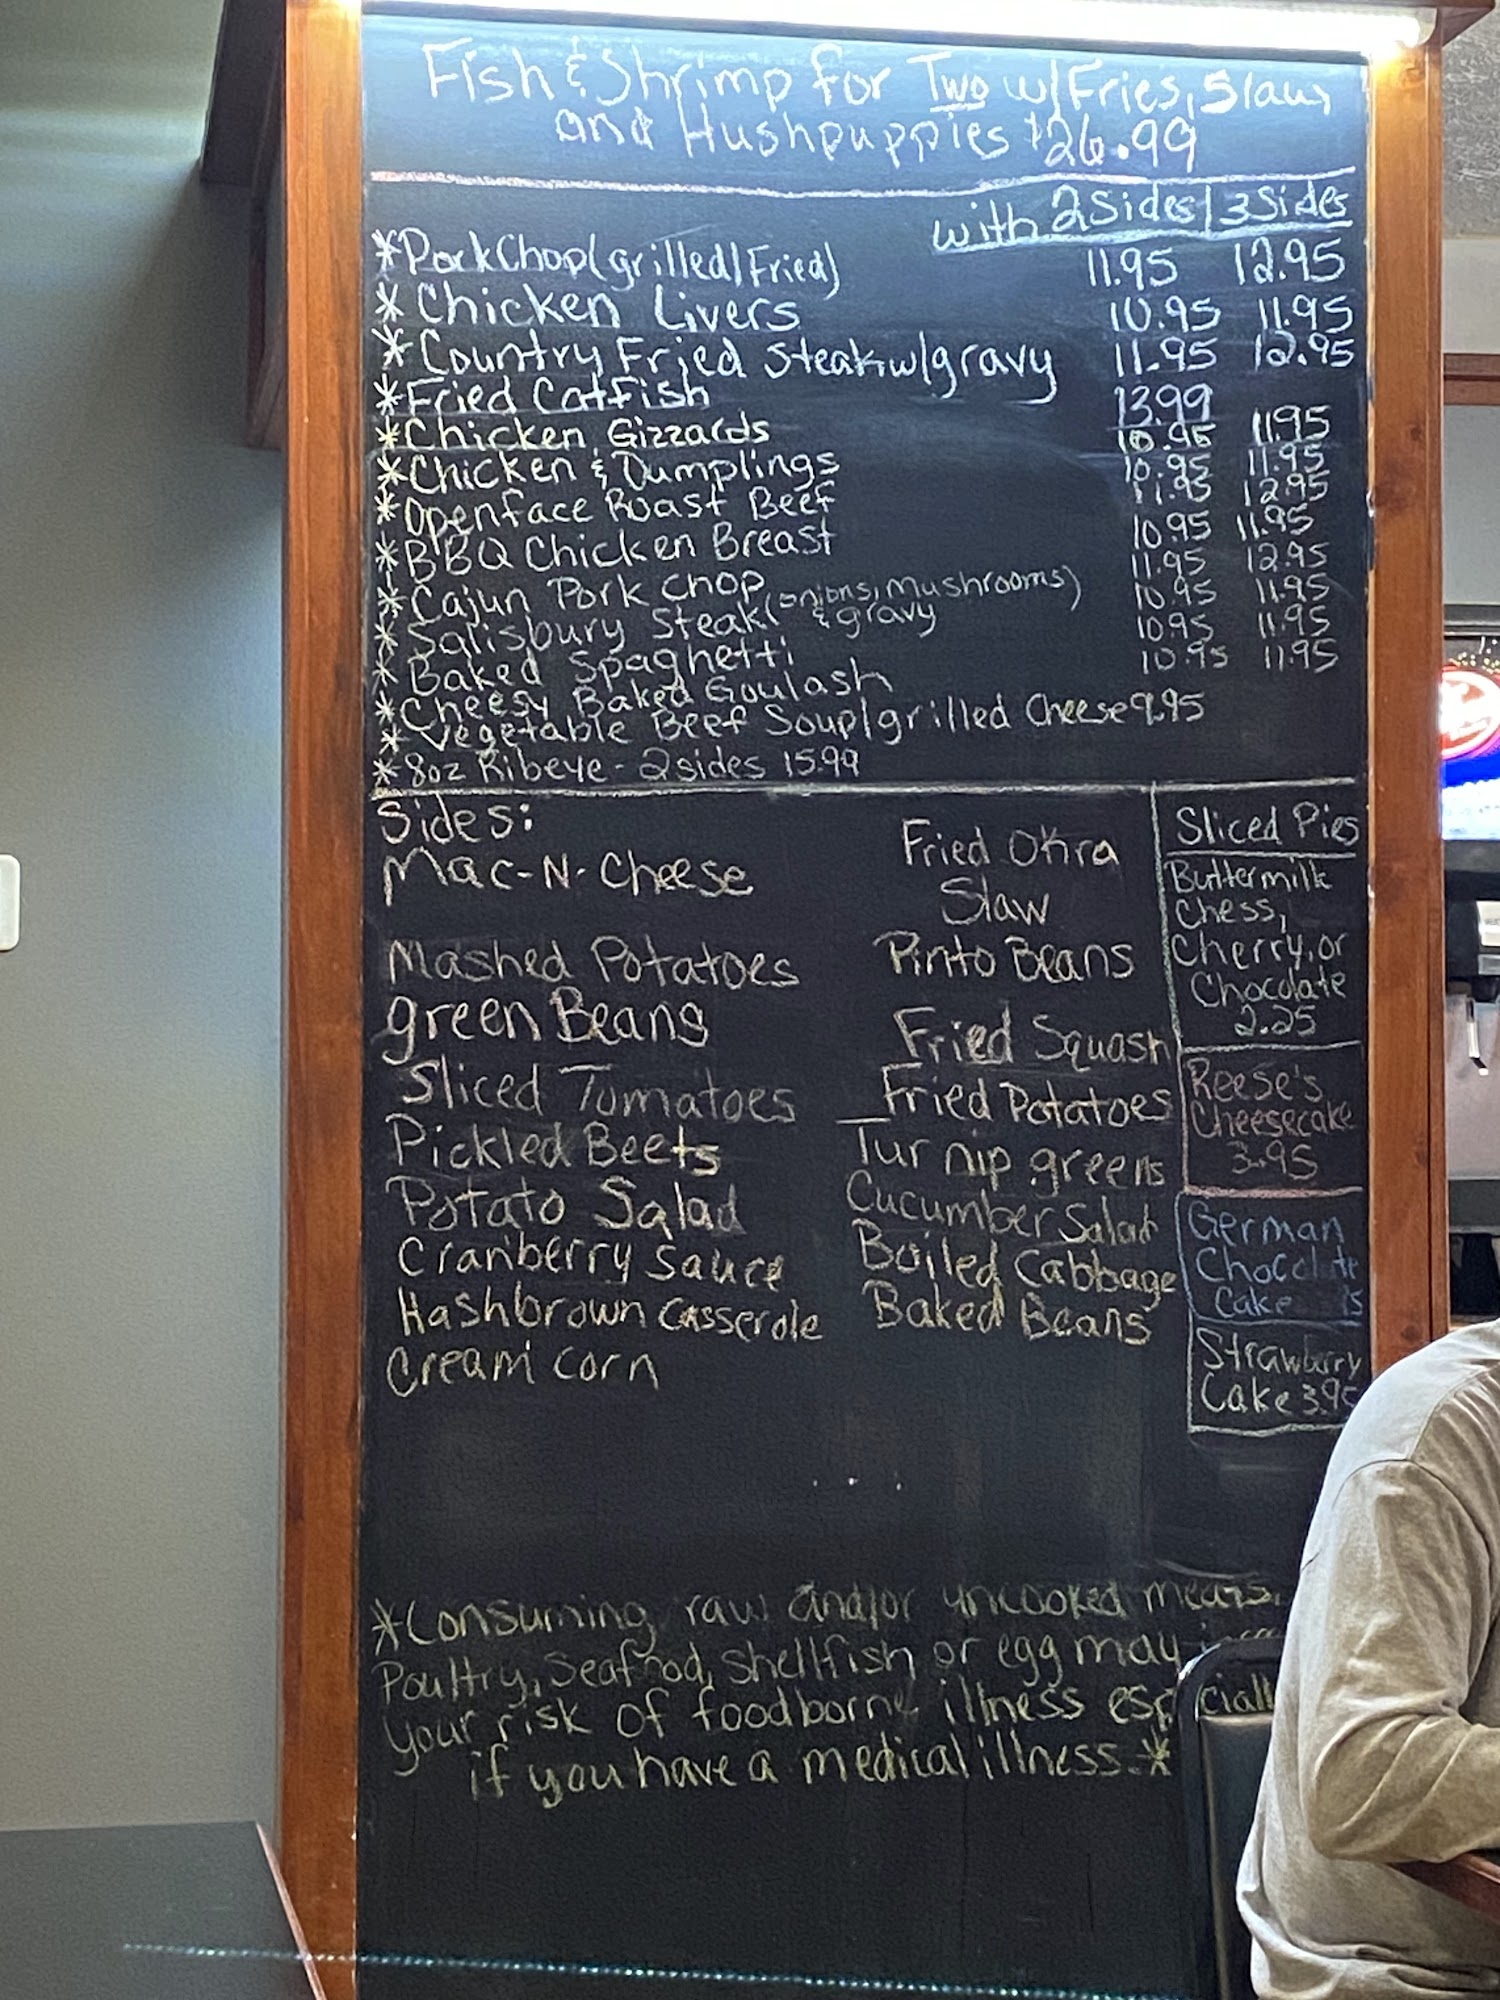 Fish & Shrimp for Two w/Fries, Slaw,
and Hushpuppies $26.99
with 2 Sides | 3 Sides
*Pork Chop (grilled/Fried) 11.95 12.95
*Chicken Livers 10.95 11.95
*Country Fried Steak w/gravy 11.95 12.95
*Fried Catfish 13.99
*Chicken Gizzards 10.95 11.95
*Chicken & Dumplings 10.95 11.95
*Openface Roast Beef 11.95 12.95
*BBQ Chicken Breast 10.95 11.95
*Cajun Pork Chop 11.95 12.95
*Salisbury Steak (onions, mushrooms & gravy) 10.95 11.95
*Baked Spaghetti 10.95 11.95
*Cheesy Baked Goulash 10.95 11.95
*Vegetable Beef Soup/grilled Cheese 9.95
*8oz Ribeye - 2 sides 15.99
Sides:
Mac-N-Cheese
Mashed Potatoes
green Beans
Sliced Tomatoes
Pickled Beets
Potato Salad
Cranberry Sauce
Hashbrown Casserole
Cream Corn
Fried Okra
Slaw
Pinto Beans
Fried Squash
Fried Potatoes
Turnip greens
Cucumber Salad
Boiled Cabbage
Baked Beans
Sliced Pies
Buttermilk
Chess,
Cherry, or
Chocolate
2.25
Reese's
Cheesecake
3.95
German
Chocolate
Cake
Strawberry
Cake 3.95
*Consuming raw and/or uncooked meats,
Poultry, Seafood, Shellfish or egg may
your risk of foodborne illness especially
if you have a medical illness.*